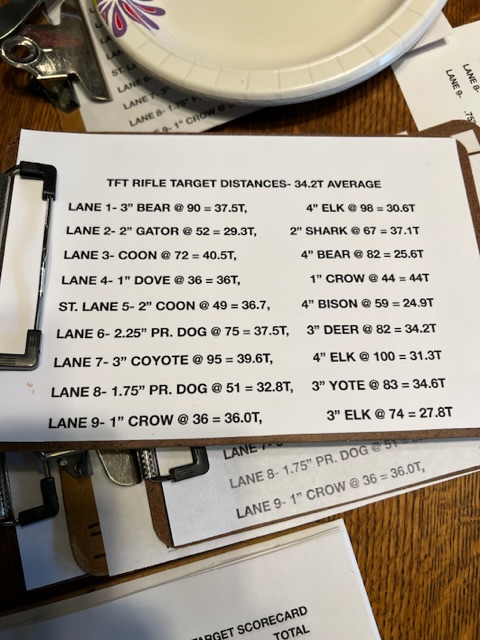 LANE 8-
LANE 9-
LANE 8- 1.75"
LANE 9- 1" CROW @
TFT RIFLE TARGET DISTANCES- 34.2T AVERAGE
LANE 1- 3” BEAR @ 90 = 37.5T, 4” ELK @ 98 = 30.6T
LANE 2- 2” GATOR @ 52 = 29.3T, 2” SHARK @ 67 = 37.1T
LANE 3- COON @ 72 = 40.5T, 4” BEAR @ 82 = 25.6T
LANE 4- 1” DOVE @ 36 = 36T, 1” CROW @ 44 = 44T
ST. LANE 5- 2” COON @ 49 = 36.7, 4” BISON @ 59 = 24.9T
LANE 6- 2.25” PR. DOG @ 75 = 37.5T, 3” DEER @ 82 = 34.2T
LANE 7- 3” COYOTE @ 95 = 39.6T, 4” ELK @ 100 = 31.3T
LANE 8- 1.75” PR. DOG @ 51 = 32.8T, 3” YOTE @ 83 = 34.6T
LANE 9- 1” CROW @ 36 = 36.0T, 3” ELK @ 74 = 27.8T
LANE 8- 1.75” PR. DOG @ 51 =
LANE 9- 1” CROW @ 36 = 36.0T,
TARGET SCORECARD
TOTAL